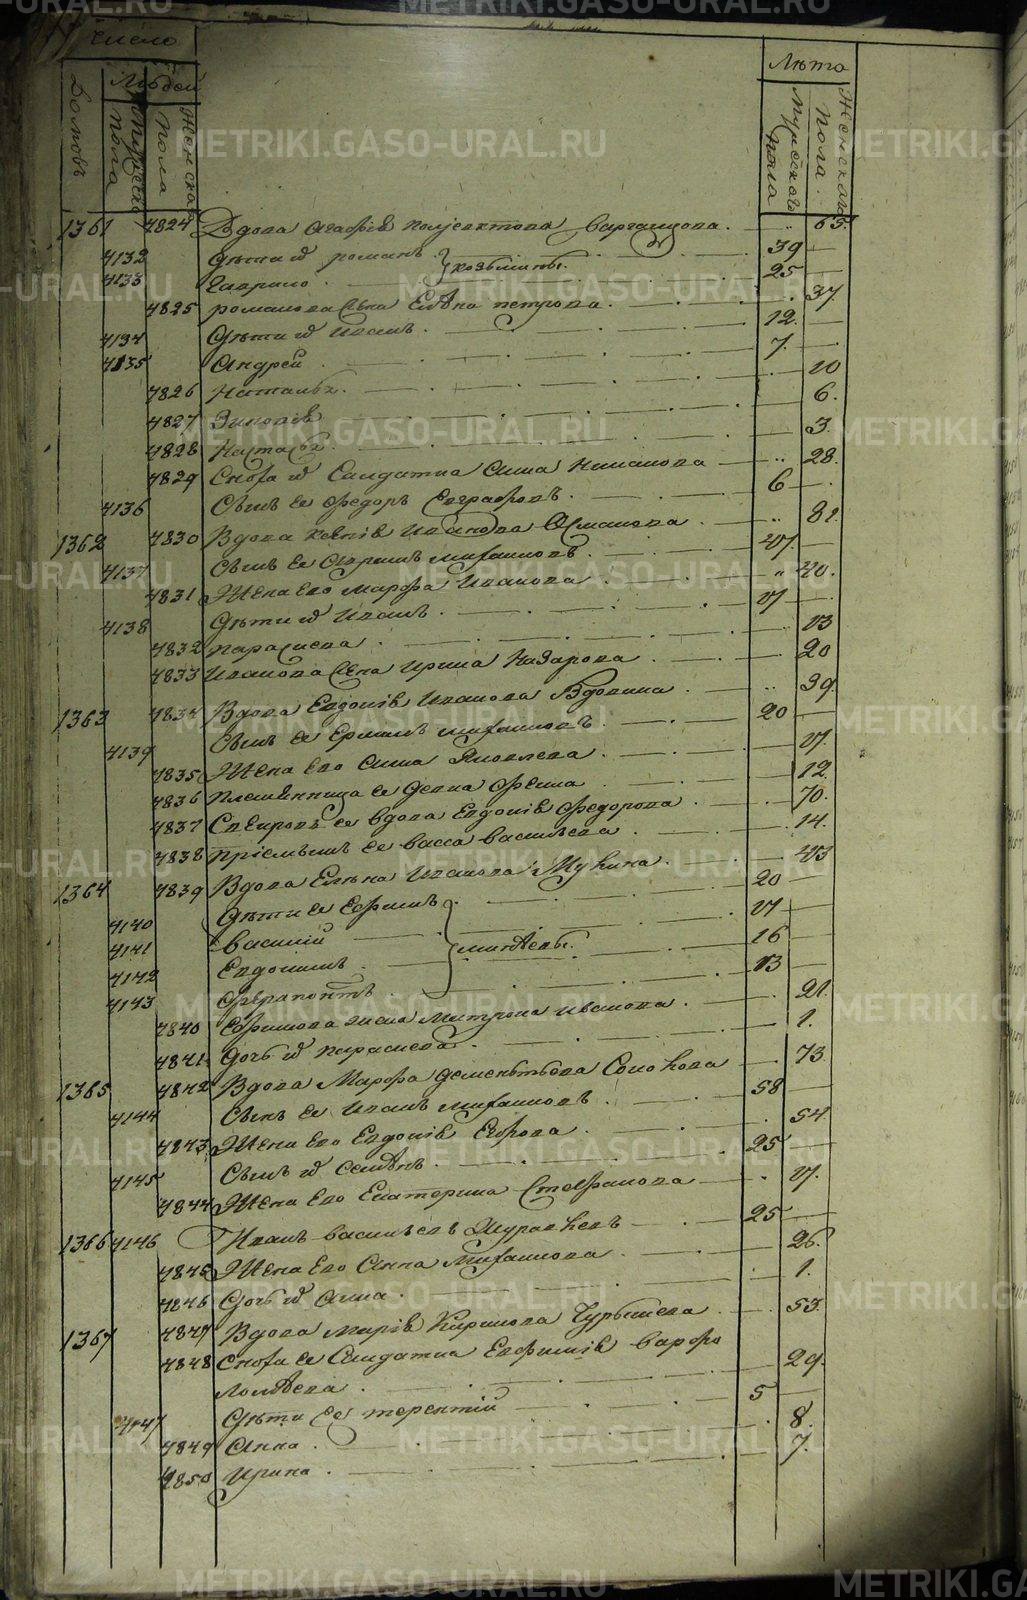 Число
Людей
Домовъ
Мужеска пола
Женска пола
Лѣта
Мужескаго пола
Женскаго пола.
1361 4824 Вдова Агафія Поліектова Варганцова. 63.
4132 Дѣти ея Романъ 39
4133 Гаврило } Козьмины. 25
4825 Романова жена Елѣна Петрова. 37
4134 Дѣти ихъ Иванъ. 12.
4135 Андрей. 7.
4826 Наталья. 10
4827 Зиновія 6.
4828 Настасья. 3.
4829 Сноха ея Салдатка Анна Иванова 28.
4136 Сынъ ея Федоръ Евграфовъ. 6
1362 4830 Вдова Ксенія Иванова 81.
4137 Сынъ ея Михайловъ. 47.
4831 Жена его Марфа Иванова 40.
4138 Дѣти ихъ Иванъ. 17
4832 Парасковья. 13
4833 Иванова жена Ирина Назарова 20
1363 4834 Вдова Евдокія Иванова Вдовина. 39.
4139 Сынъ ея Михайловъ. 20
4835 Жена его Анна Яковлева 17.
4836 Племянница ея девка 12.
4837 Свекровь ея вдова Евдокія Федорова 70.
4838 Пріемышъ ея Васса Васильева 14.
1364 4839 Вдова Елѣна Иванова Мухина. 43
4140 Дѣти ея Ефимъ 20
4141 Василій 17
4142 Евдокимъ } Минѣевы. 16
4143 Ферапонтъ 13
4840 Ефимова жена Митрона Иванова 21.
4841 Дочь ихъ Парасковья. 1.
1365 4842 Вдова Марфа Дементьева 73.
4144 Сынъ ея Иванъ Михайловъ. 58
4843 Жена его Евдокія Егорова 54
4145 Сынъ ихъ Семенъ. 25
4844 Жена его Екатерина Стефанова 17.
1366 4146 Иванъ Васильевъ Журавлевъ 25
4845 Жена его Анна Михайлова 26.
4846 Дочь ихъ Анна. 1.
1367 4847 Вдова Марія Кирилова 53.
4848 Сноха ея Салдатка Евфимія Варфо
ломѣева. 29.
4147 Дѣти ея Терентій 5
4849 Анна. 8.
4850 Ирина. 7.
METRIKI.GASO-URAL.RU